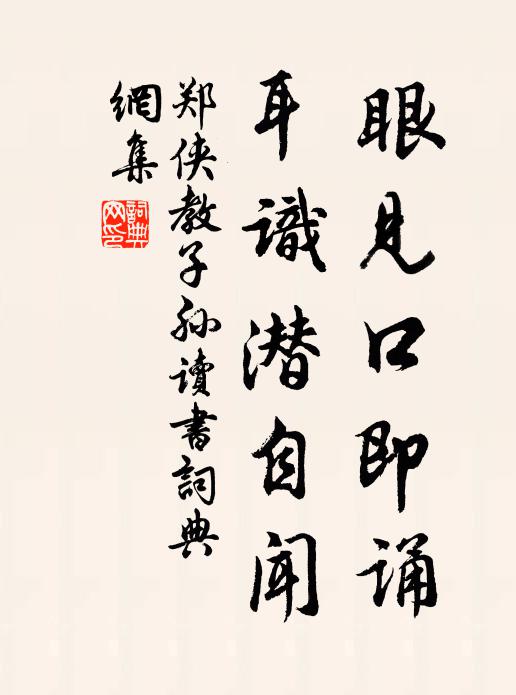 眼见口即诵
耳識潜自闻
郑侠教子孙讀書詞典
網集
詞典网印